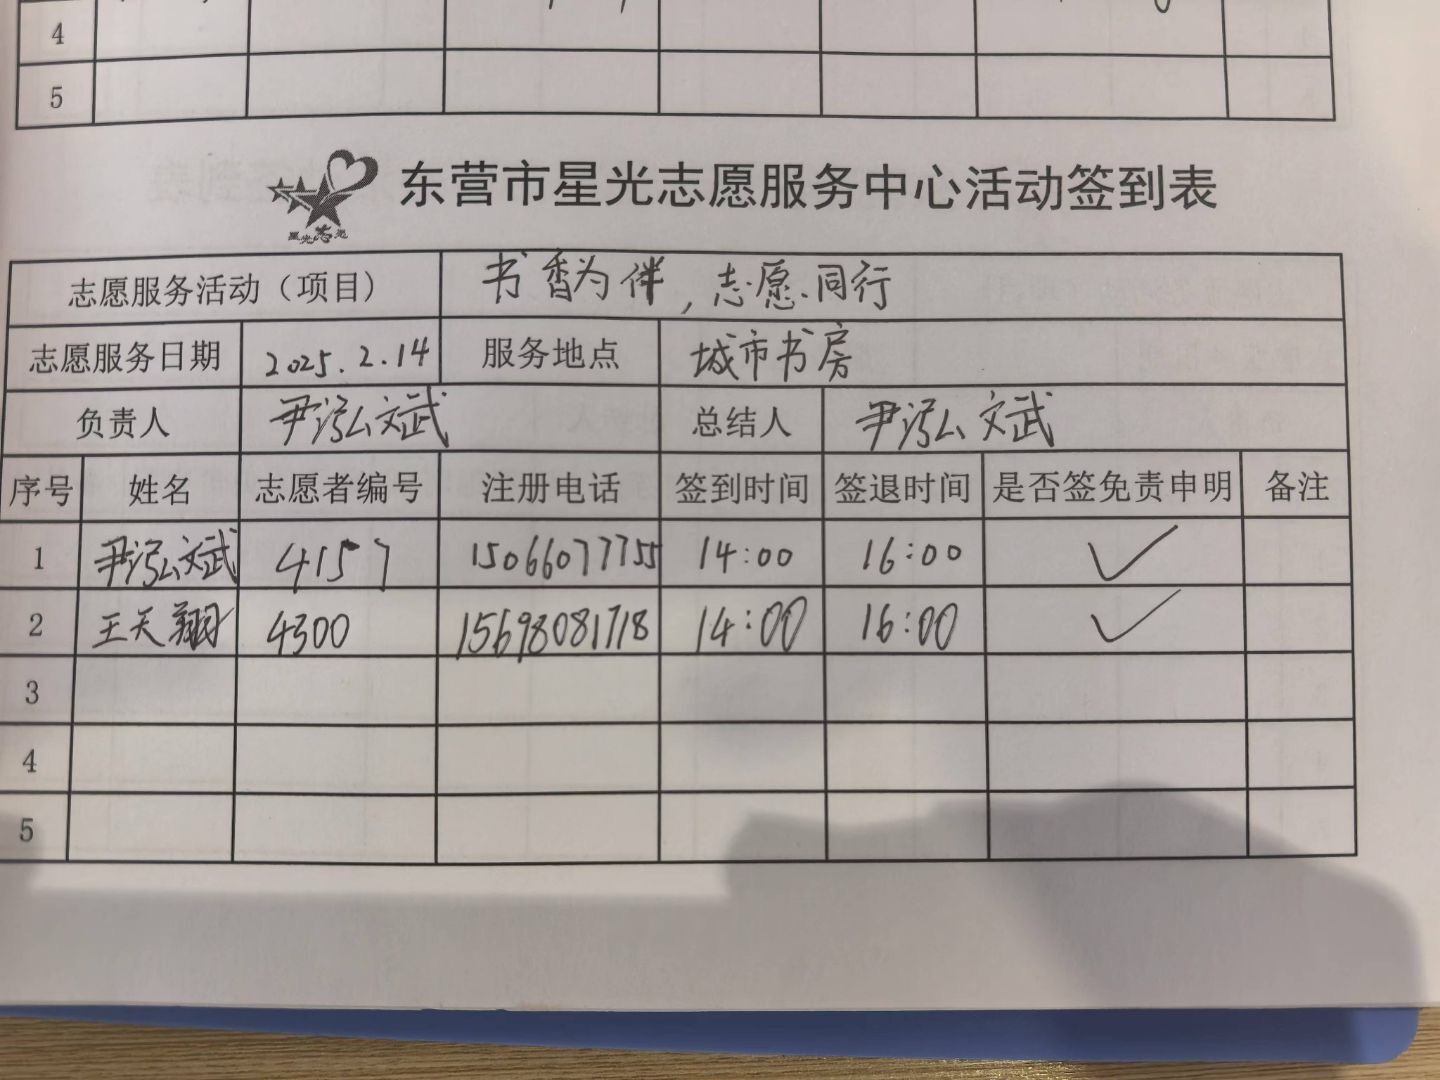 4
5
星光志愿
东营市星光志愿服务中心活动签到表
志愿服务活动（项目） 书香为伴，志愿同行
志愿服务日期 2025.2.14 服务地点 城市书房
负责人 尹泓文武 总结人 尹泓文武
序号 姓名 志愿者编号 注册电话 签到时间 签退时间 是否签免责申明 备注
1 尹泓文武 4157 15066077755 14:00 16:00 ✓
2 王天翔 4300 15698081718 14:00 16:00 ✓
3
4
5